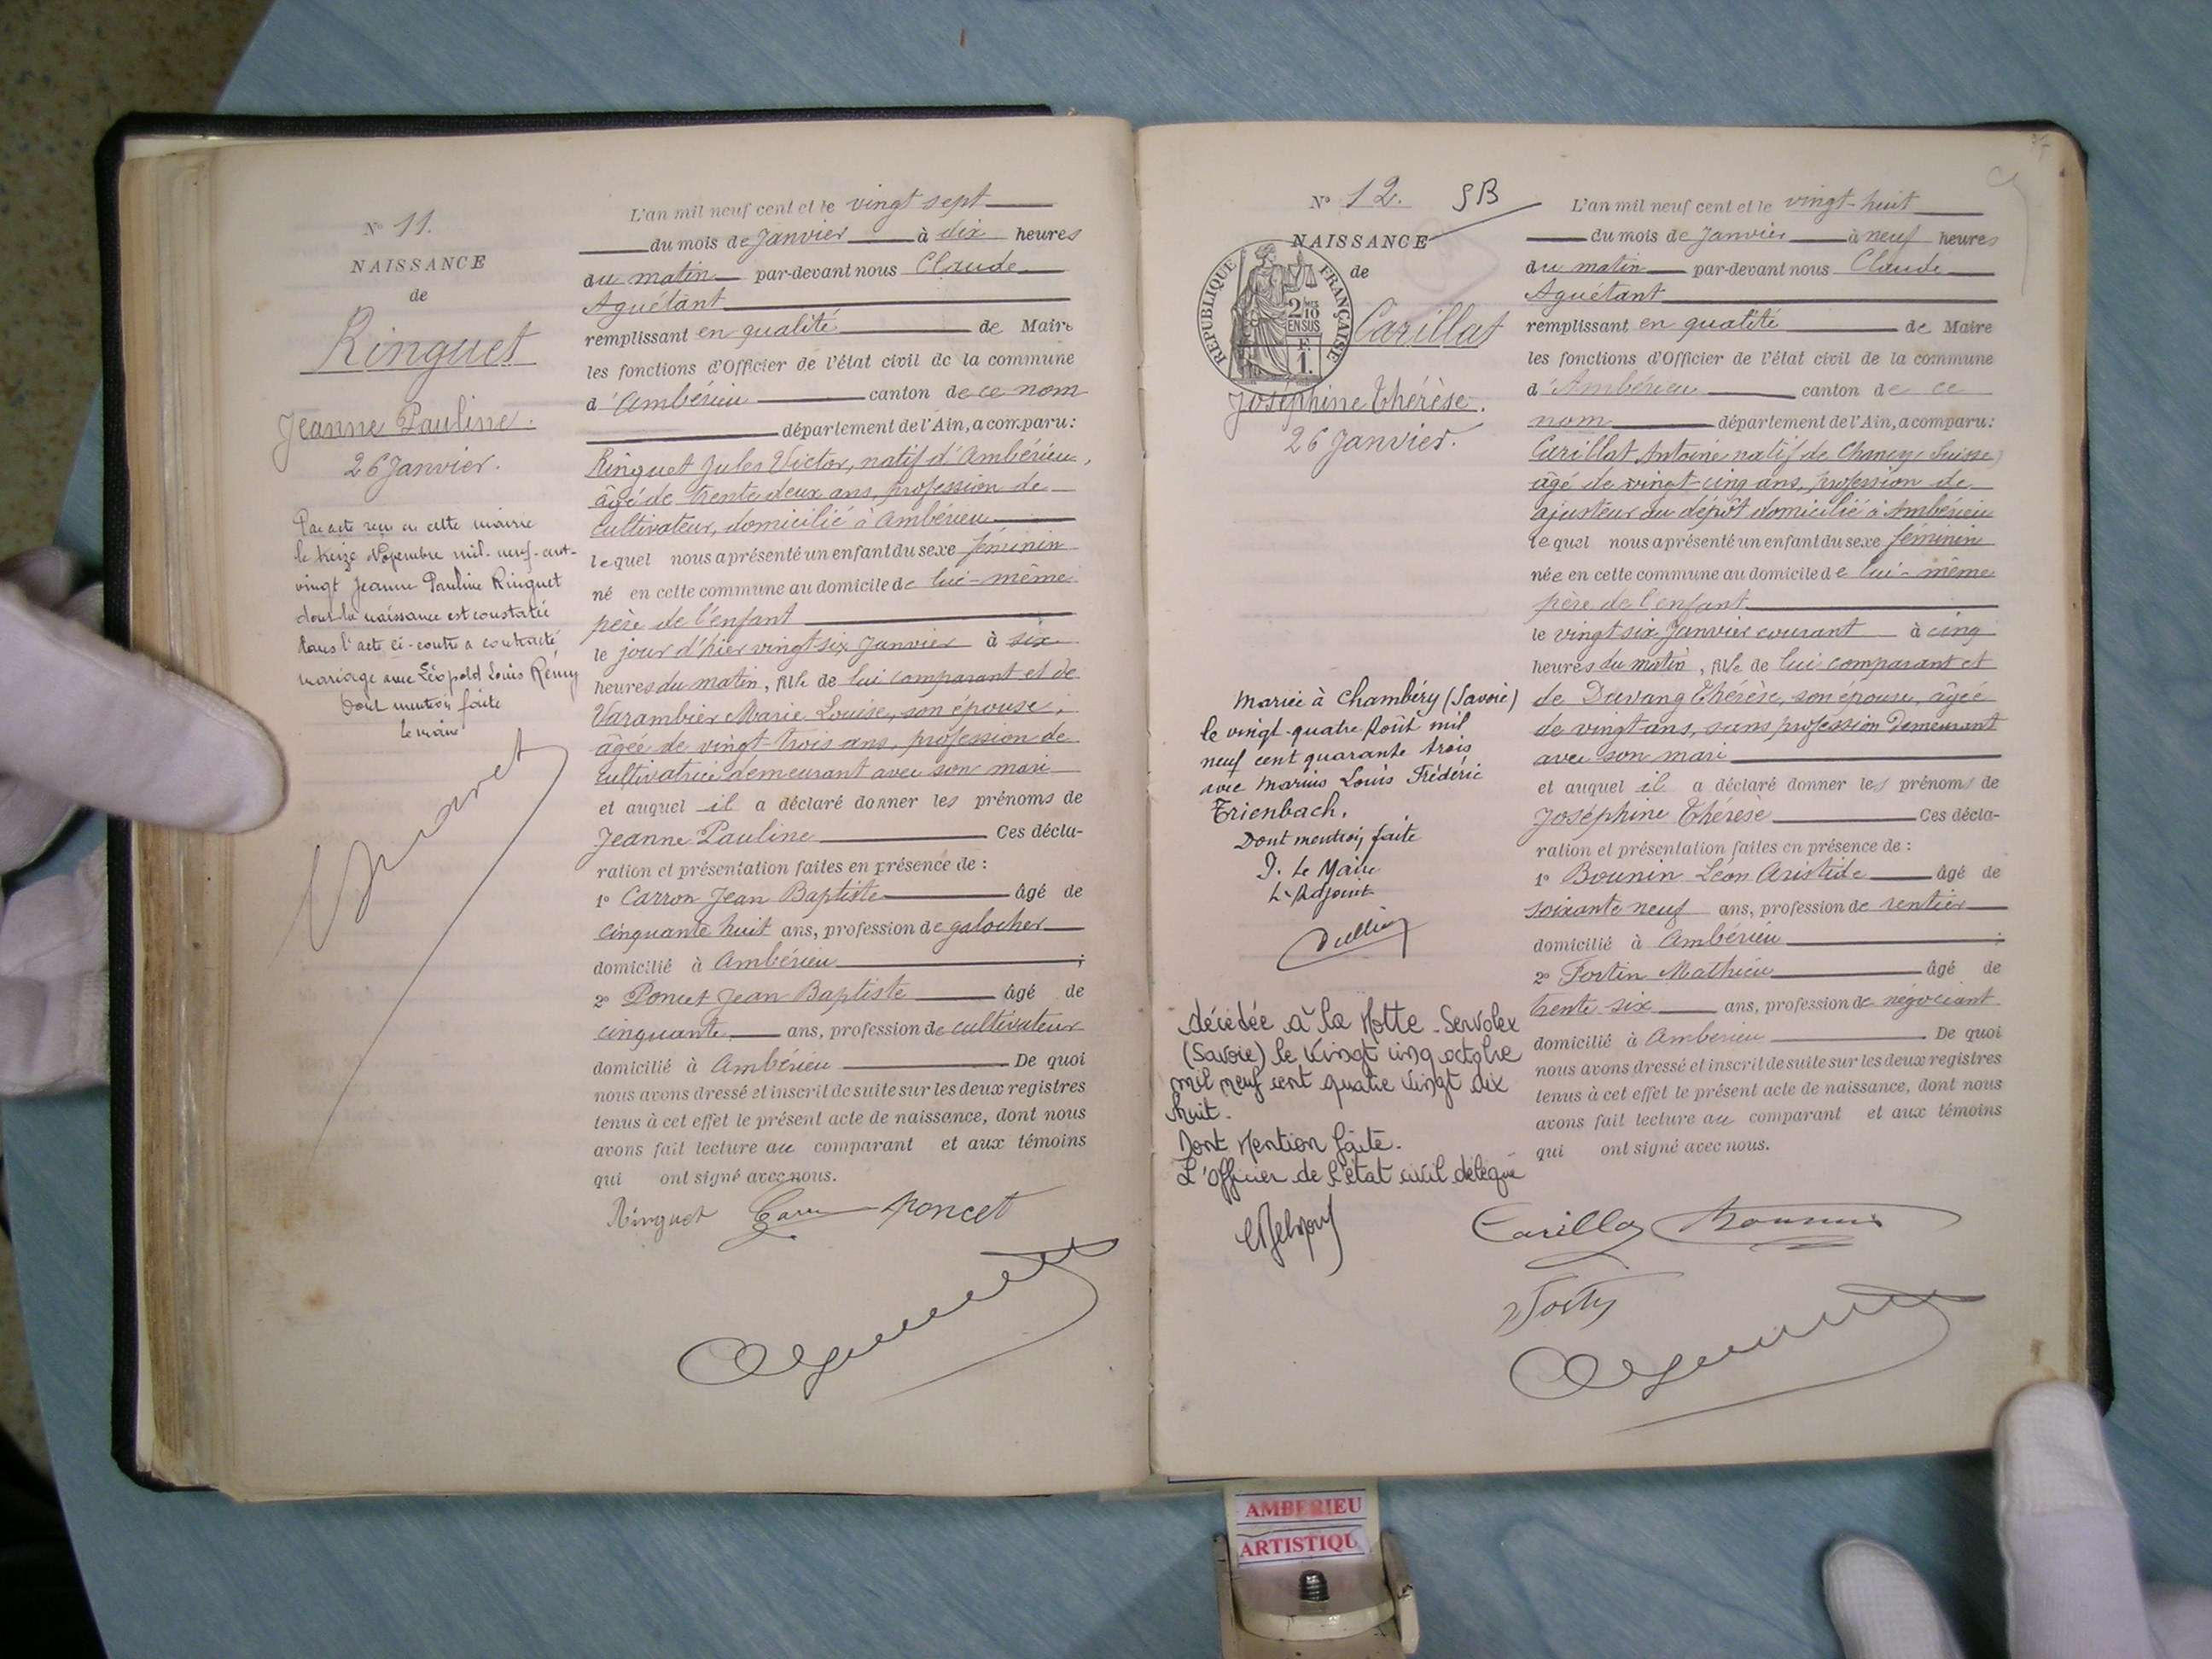 N° 11.
NAISSANCE
de
Ringuet
Jeanne Pauline.
26 Janvier.
Par acte reçu en cette mairie
le treize Novembre mil-neuf-cent-
vingt Jeanne Pauline Ringuet
dont la naissance est constatée
dans l'acte ci-contre a contracté
mariage avec Léopold Louis Rémy
Dont mention faite
Le maire
L'an mil neuf cent et le vingt sept
du mois de Janvier à dix heures
du matin par-devant nous Claude
Aguétant
remplissant en qualité de Maire
les fonctions d'Officier de l'état civil de la commune
d'Ambérieu canton de ce nom
département de l'Ain, a comparu:
Ringuet Jules Victor, natif d'Ambérieu,
âgé de trente deux ans, profession de
cultivateur, domicilié à Ambérieu
lequel nous a présenté un enfant du sexe féminin
né en cette commune au domicile de lui-même
père de l'enfant
le jour d'hier vingt-six Janvier à six
heures du matin, fille de lui comparant et de
Varambier Marie Louise, son épouse,
âgée de vingt-trois ans, profession de
cultivatrice demeurant avec son mari
et auquel il a déclaré donner les prénoms de
Jeanne Pauline Ces décla-
ration et présentation faites en présence de :
1° Carron Jean Baptiste âgé de
cinquante huit ans, profession de galocher
domicilié à Ambérieu ;
2° Poncet Jean Baptiste âgé de
cinquante ans, profession de cultivateur
domicilié à Ambérieu De quoi
nous avons dressé et inscrit de suite sur les deux registres
tenus à cet effet le présent acte de naissance, dont nous
avons fait lecture au comparant et aux témoins
qui ont signé avec nous.
Ringuet Poncet
N° 12. SB
NAISSANCE
de
RÉPUBLIQUE FRANÇAISE
2/10
EN SUS
F.
1.
Carillat
Joséphine Thérèse.
26 Janvier.
Mariée à Chambéry (Savoie)
le vingt-quatre Août mil
neuf cent quarante trois
avec Marius Louis Frédéric
Trienbach.
Dont mention faite
P. Le Maire
L'Adjoint
décédée à la Motte-Servolex
(Savoie) le vingt cinq octobre
mil neuf cent quatre vingt dix
huit.
Dont Mention faite.
L'Officier de l'état civil délégué
L'an mil neuf cent et le vingt-huit
du mois de Janvier à neuf heures
du matin par-devant nous Claude
Aguétant
remplissant en qualité de Maire
les fonctions d'Officier de l'état civil de la commune
d'Ambérieu canton de ce
nom département de l'Ain, a comparu:
Carillat Antoine natif de Chancy (Suisse)
âgé de vingt-cinq ans, profession de
ajusteur au dépôt domicilié à Ambérieu
lequel nous a présenté un enfant du sexe féminin
née en cette commune au domicile de lui-même
père de l'enfant
le vingt six Janvier courant à cinq
heures du matin, fille de lui comparant et
de Duvang Thérèse, son épouse, âgée
de vingt ans, sans profession Demeurant
avec son mari
et auquel il a déclaré donner les prénoms de
Joséphine Thérèse Ces décla-
ration et présentation faites en présence de :
1° Bounin Léon Aristide âgé de
soixante neuf ans, profession de rentier
domicilié à Ambérieu ;
2° Fortin Mathieu âgé de
trente six ans, profession de négociant
domicilié à Ambérieu De quoi
nous avons dressé et inscrit de suite sur les deux registres
tenus à cet effet le présent acte de naissance, dont nous
avons fait lecture au comparant et aux témoins
qui ont signé avec nous.
AMBERIEU
ARTISTIQU